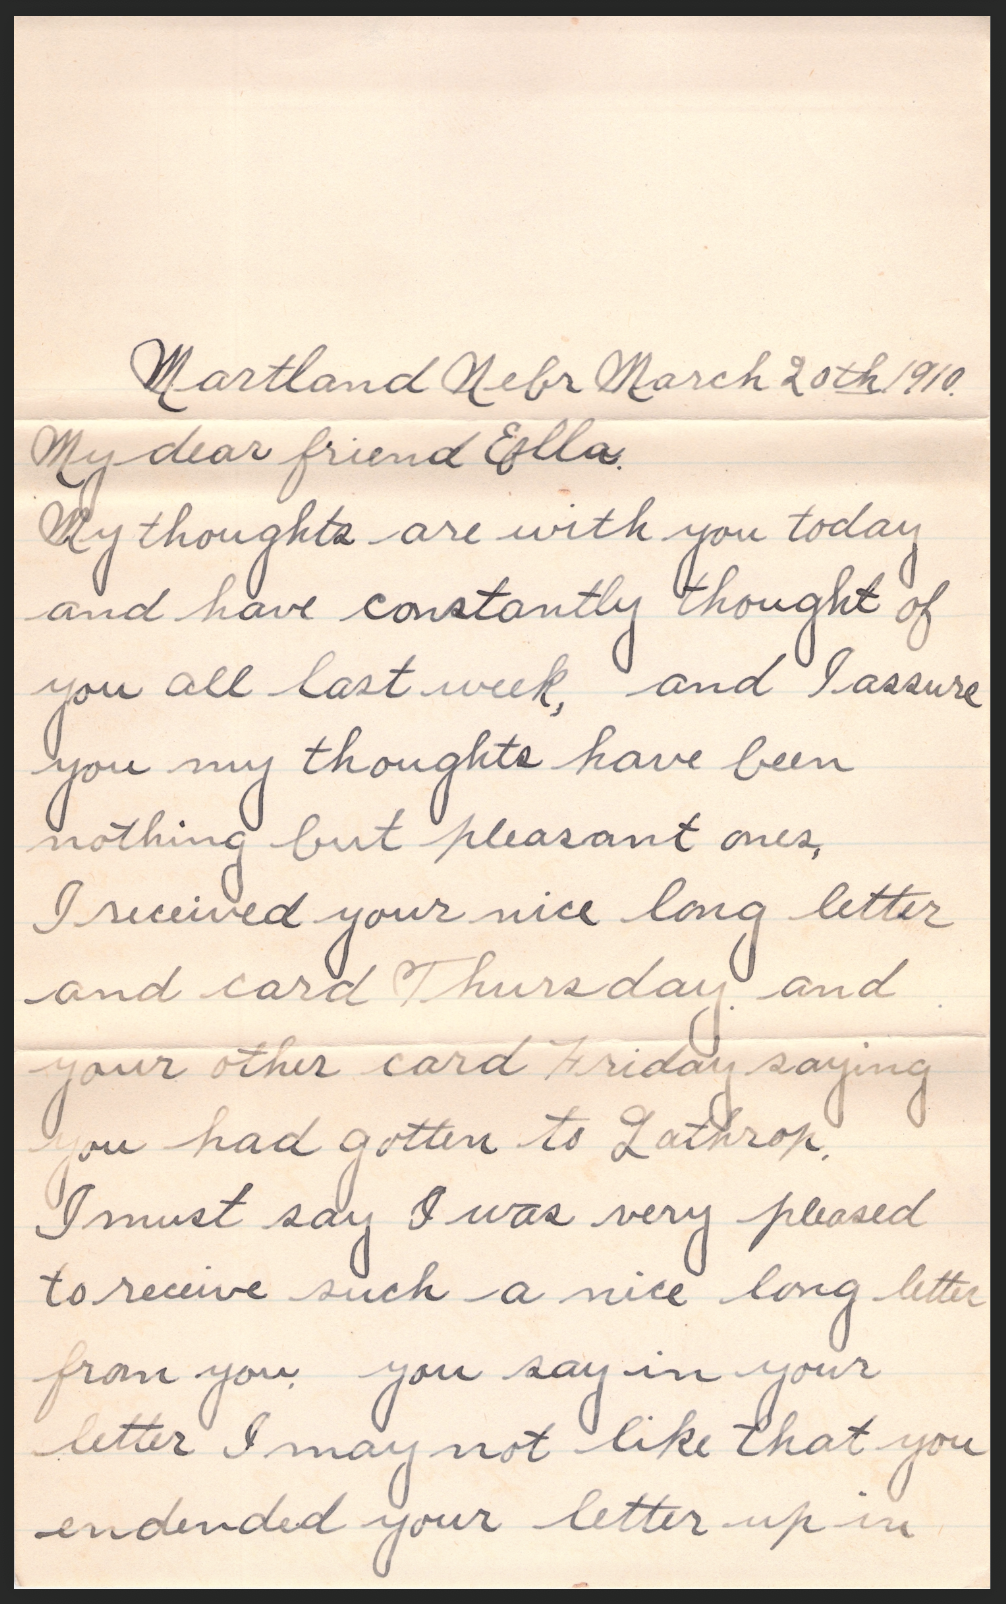 Martland Nebr March 20th 1910.
My dear friend Ella.
My thoughts are with you today
and have constantly thought of
you all last week, and I assure
you my thoughts have been
nothing but pleasant ones,
I received your nice long letter
and card Thursday. and
your other card Friday saying
you had gotten to Lathrop.
I must say I was very pleased
to receive such a nice long letter
from you. you say in your
letter I may not like that you
endended your letter up in